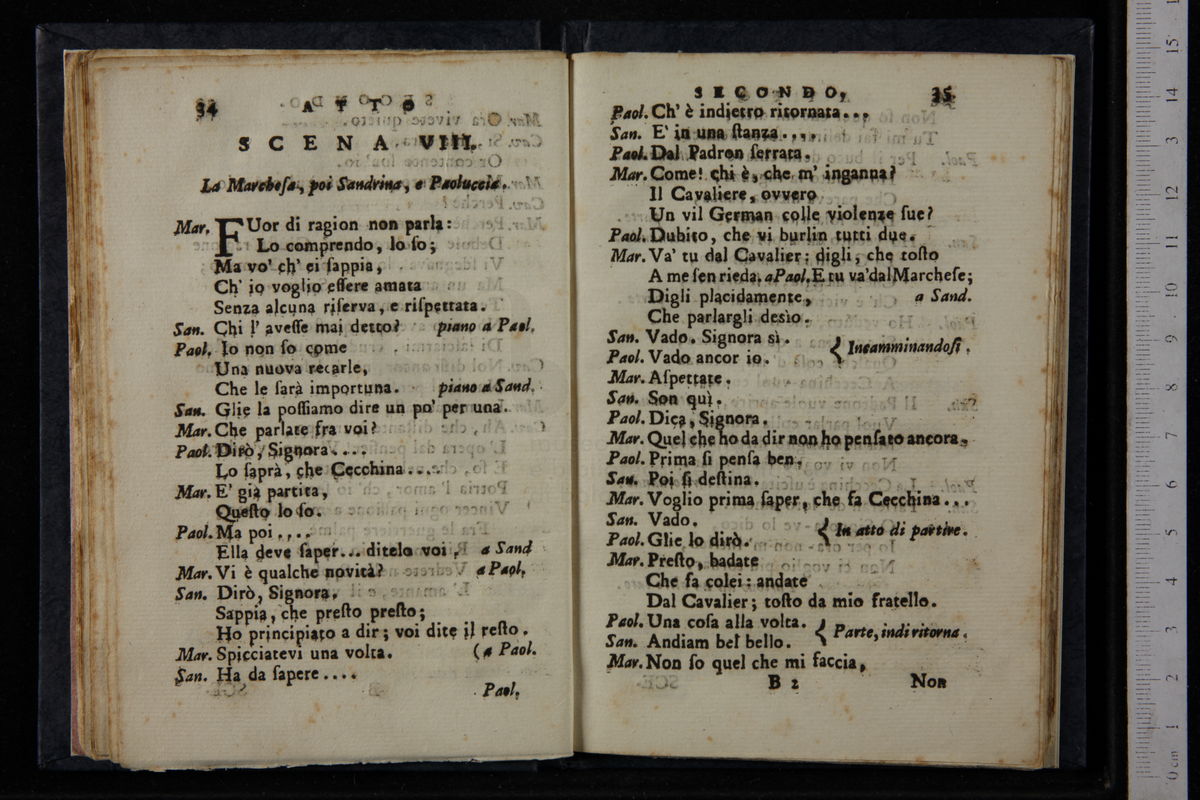 34 ATTO
SCENA VIII.
La Marchesa, poi Sandrina, e Paoluccia.
Mar. FUor di ragion non parla:
Lo comprendo, lo ſo;
Ma vo' ch' ei ſappia,
Ch' io voglio eſſere amata
Senza alcuna riſerva, e riſpettata.
San. Chi l' aveſſe mai detto? piano a Paol.
Paol. Io non ſo come
Una nuova recarle,
Che le ſarà importuna. piano a Sand.
San. Glie la poſſiamo dire un po' per una.
Mar. Che parlate fra voi?
Paol. Dirò, Signora....
Lo ſaprà, che Cecchina...
Mar. E' già partita,
Queſto lo ſo.
Paol. Ma poi....
Ella deve ſaper... ditelo voi. a Sand
Mar. Vi è qualche novità? a Paol.
San. Dirò, Signora.
Sappia, che preſto preſto;
Ho principiato a dir; voi dite il reſto.
Mar. Spicciatevi una volta. (a Paol.
San. Ha da ſapere....
Paol.
SECONDO, 35
Paol. Ch' è indietro ritornata...
San. E' in una ſtanza....
Paol. Dal Padron ſerrata.
Mar. Come! chi è, che m' inganna?
Il Cavaliere, ovvero
Un vil German colle violenze ſue?
Paol. Dubito, che vi burlin tutti due.
Mar. Va' tu dal Cavalier: digli, che toſto
A me ſen rieda. a Paol. E tu va' dal Marcheſe;
Digli placidamente, a Sand.
Che parlargli desìo.
San. Vado. Signora sì.
Paol. Vado ancor io. { Incamminandoſi.
Mar. Aſpettate.
San. Son quì.
Paol. Dica, Signora.
Mar. Quel che ho da dir non ho penſato ancora.
Paol. Prima ſi penſa ben.
San. Poi ſi deſtina.
Mar. Voglio prima ſaper, che fa Cecchina...
San. Vado.
Paol. Glie lo dirò. { In atto di partire.
Mar. Preſto, badate
Che fa colei: andate
Dal Cavalier; toſto da mio fratello.
Paol. Una coſa alla volta.
San. Andiam bel bello. { Parte, indi ritorna.
Mar. Non ſo quel che mi faccia,
B 2 Non